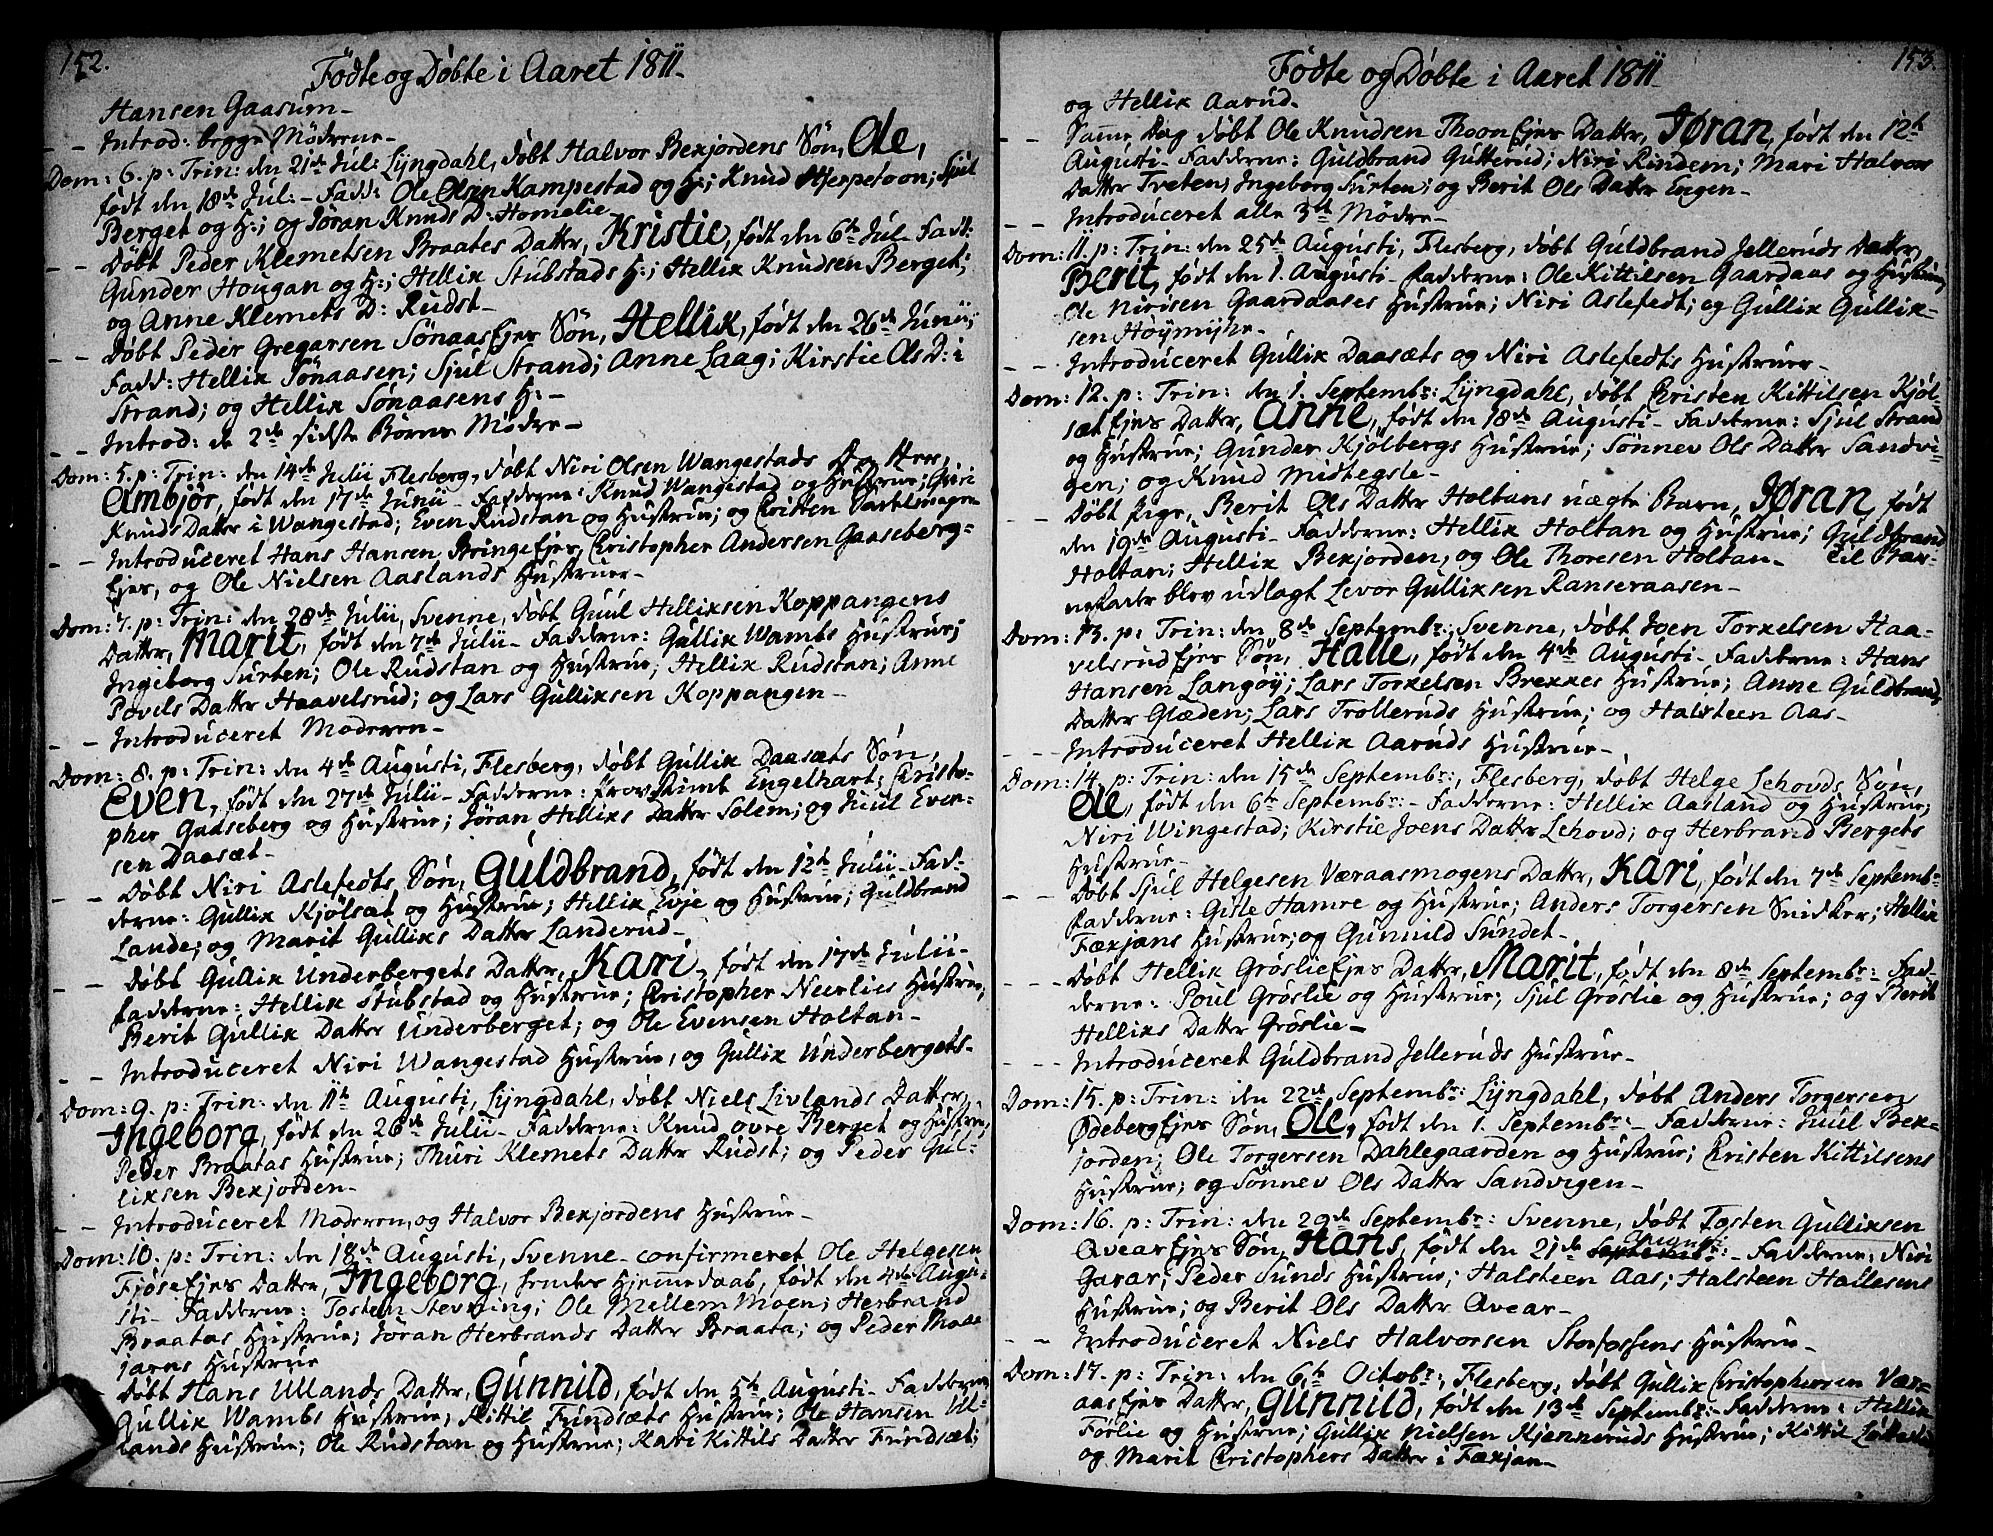 152.
Födte og Döbte i Aaret 1811.
Hansen Gaasum -
- - Introd: begge Mödrene -
Dom: 6. p: Trin: den 21de Jul: Lÿngdahl, döbt Halvor Bexjordens Sön, Ole,
födt den 18de Jul: - Fadd: Ole Olsen Kampestad og H:; Knud Hierpetoon; Sjul
Berget og H:; og Jöran Knuds D: Homelie -
- - Döbt Peder Klemetsen Braates Datter, Kristie, födt den 6te Jul. Fadd:
Gunder Hougan og H:; Hellix Stubstads H:; Hellix Knudsen Berget;
og Anne Klemets D: Rudst -
- - Döbt Peder Gregarsen Sönaas Ejes Sön, Hellix, födt den 26de Junii;
Fadd: Hellix Sönaasen; Sjul Strand; Anne Laag; Kirstie Ols D: i
Strand; og Hellix Sönaasens H: -
- - Introd: de 2de sidste Börns Mödre -
Dom: 5. p: Trin: den 14de Julii Flesberg, döbt Niri Olsen Wangestads Datter,
Ambjör, födt den 17de Junii - Fadderne: Knud Wangestad og Hustrue; Guri
Knuds Datter i Wangestad; Even Rudstan og Hustrue; og Christen
- - Introduceret Hans Hansen Bringe Ejes, Christopher Andersen Gaaseberg-
Ejes, og Ole Nielsen Aaslands Hustruer -
Dom: 7. p: Trin: den 28de Julii, Svenne, döbt Guul Hellixsen Koppangens
Datter, Marit, födt den 7de Julii - Fadderne: Gullix Wambs Hustrue;
Ingeborg Surten; Ole Rudstan og Hustrue; Hellix Rudstan; Anne
Povels Datter Haavelsrud; og Lars Gullixsen Koppangen -
- - Introduceret Moderen -
Dom: 8. p: Trin: den 4de Augusti, Flesberg, döbt Gullix Daasæts Sön,
Even, födt den 27de Julii - Fadderne: Engelhart; Christo-
pher Gaaseberg og Hustrue; Jöran Hellixs Datter Solem; og Juul Even-
sen Daasæt -
- - Döbt Niri Aslefedts Sön, Guldbrand, födt den 12te Julii - Fad-
derne: Gullix Kjölsæt og Hustrue; Hellix Evje og Hustrue; Guldbrand
Lande; og Marit Gullixs Datter Landerud -
- - Döbt Gullix Underbergets Datter, Kari, födt den 17de Julii -
Fadderne: Hellix Stubstad og Hustrue; Christopher Neerlies Hustrue;
Berit Gullix Datter Underberget; og Ole Evensen Holtan -
- - Introduceret Niri Wangestad Hustrue, og Gullix Underbergets -
Dom: 9. p: Trin: den 11te Augusti, Lÿngdahl, döbt Niels Livlands Datter,
Ingeborg, födt den 26de Julii - Fadderne: Knud övre Berget og Hustrue;
Peder Braatas Hustrue; Thuri Klemets Datter Rudst; og Peder Gul-
lixsen Bexjorden -
- - Introduceret Moderen, og Halvor Bexjordens Hustrue -
Dom: 10. p: Trin: den 18de Augusti, Svenne - confirmeret Ole Helgesen
Fjöse Ejes Datter, Ingeborg, hendes Hjemmedaab, födt den 4de Augu-
sti - Fadderne: Tosten Stevning; Ole Mellem Moen; Herbrand
Braatas Hustrue; Jöran Herbrands Datter Braata; og Peder
jarns Hustrue
- Döbt Hans Ullands Datter, Gunnild, födt den 5te Augusti - Fadderne
Gullix Wambs Hustrue; Kittil Frindsæts Hustrue; Ole Hansen Ul-
lands Hustrue; Ole Rudstan og Hustrue; Kari Kittils Datter Frindsæt;
153.
Födte og Döbte i Aaret 1811.
og Hellix Aarud -
- - Samme Dag döbt Ole Knudsen Thoon Ejes Datter, Jøran, födt den 12te
Augusti - Fadderne: Guldbrand Gutterud; Niri Rindem; Mari Halvors
Datter Tveten; Ingeborg Surten; og Berit Ols Datter Engen -
- - Introduceret alle 3de Mödre -
Dom: 11. p: Trin: den 25de Augusti, Flesberg, döbt Guldbrand Jelleruds Datter,
Berit, födt den 1. Augusti - Fadderne: Ole Kittilsen Gaardaas og Hustrue,
Ole Nirisen Gaardaases Hustrue; Niri Aslefedt; og Gullix Gullix-
sen Höÿmÿhr -
- - Introduceret Gullix Daasæts og Niri Aslefedts Hustruer -
Dom: 12. p: Trin: den 1. Septembr: Lÿngdahl, döbt Christen Kittilsen Kjöl-
sæt Ejes Datter, Anne, födt den 18de Augusti - Fadderne: Sjul Strand
og Hustrue; Gunder Kjölbergs Hustrue; Sönnev Ols Datter Sandvi-
gen; og Knud Midtegsle -
- Döbt Pige, Berit Ols Datter Holtans uægte Barn, Jøran, födt
den 19de Augusti - Fadderne: Hellix Holtan og Hustrue; Guldbrand
Holtan; Hellix Bexjorden, og Ole Thoresen Holtan - Til Bar-
nefader blev udlagt Levor Gullixsen Ranseraasen -
Dom: 13. p: Trin: den 8de Septembr:, Svenne, döbt Joen Torxelsen Haa-
velsrud Ejes Sön, Halle, födt den 4de Augusti - Fadderne: Hans
Hansen Langöÿ; Lars Torxelsen Brexxes Hustrue; Anne Guldbrands
Datter Glæden; Lars Trolleruds Hustrue; og Halsteen Aas -
- - - Introduceret Hellix Aaruds Hustrue -
Dom: 14. p: Trin: den 15de Septembr:, Flesberg, döbt Helge Lehovds Sön,
Ole, födt den 6te Septembr: - Fadderne: Hellix Aasland og Hustrue;
Niri Wingestad; Kirstie Joens Datter Lehovd; og Herbrand Bergets
Hustrue -
- - Döbt Sjul Helgesen Væraasmogens Datter, Kari, födt den 7de Septembr:
Fadderne: Gisle Hamre og Hustrue; Anders Torgersen Snidker; Hellix
Fæxjans Hustrue; og Gunnild Sundet -
- - - Döbt Hellix Gröslie Ejes Datter, Marit, födt den 8de Septembr: Fad-
derne: Poul Gröslie og Hustrue; Sjul Gröslie og Hustrue; og Berit
Hellixs Datter Gröslie -
- - - Introduceret Guldbrand Jelleruds Hustrue -
Dom: 15. p: Trin: den 22de Septembr: Lÿngdahl, döbt Anders Torgersen
Ødeberg Ejes Sön, Ole, födt den 1. Septembr: - Fadderne: Juul Bex-
jorden; Ole Torgersen Dahlegaarden og Hustrue; Christen Kittilsens
Hustrue; og Sönnev Ols Datter Sandvigen -
Dom: 16. p: Trin: den 29de Septembr: Svenne, döbt Tosten Gullixsen
Qvear Ejes Sön, Hans, födt den 21de Septembr: Augusti - Fadderne: Niri
Gavar; Peder Sunds Hustrue; Halsteen Aas; Halsteen Hallesens
Hustrue; og Berit Ols Datter Qvear -
- - Introduceret Niels Halvorsen Storfossens Hustrue -
Dom: 17. p: Trin: den 6te Octobr:, Flesberg, döbt Gullix Christophersen Vær-
aas Ejes Datter, Gunnild, födt den 13de Septembr: - Fadderne: Hellix
Förlie og Hustrue; Gullix Nielsen Kjenneruds Hustrue; Kittil
og Marit Christophers Datter i Fæxjan -